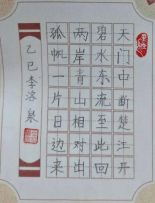 天门中断楚江开
碧水东流至此回
两岸青山相对出
孤帆一片日边来
乙巳李溶泉